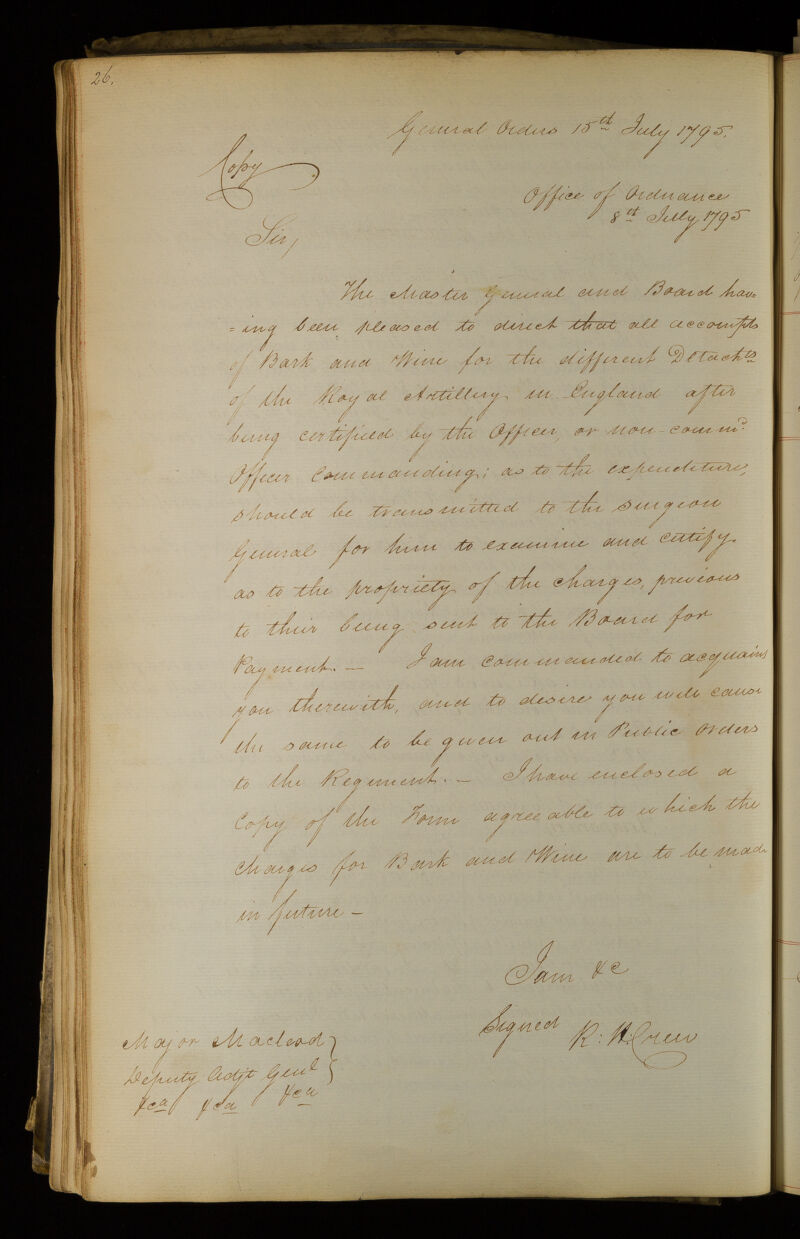 26.
General Orders 15th July 1795.
Copy
Office of Ordnance
8th July 1795
Sir,
The Master General and Board hav=
=ing been pleased to direct that all accompts
of Bark and Wine for the different Detachts
of the Royal Artillery in England after
being certified by the Officer, or non-commd
Officer Commanding; as to the expenditure,
should be transmitted to the Surgeon
General for him to examine and certify
as to the propriety of the charges, previous
to their being sent to the Board for
Payment. — I am commanded to acquaint
you therewith, and to desire you will cause
the same to be given out in Public Orders
to the Regiment. — I have enclosed a
Copy of the Form agreeable to which the
Charges for Bark and Wine are to be made
in future —
I am &c
Signed R: H: Crew
Major Macleod }
Deputy Adjt Genl }
&ca &ca &ca